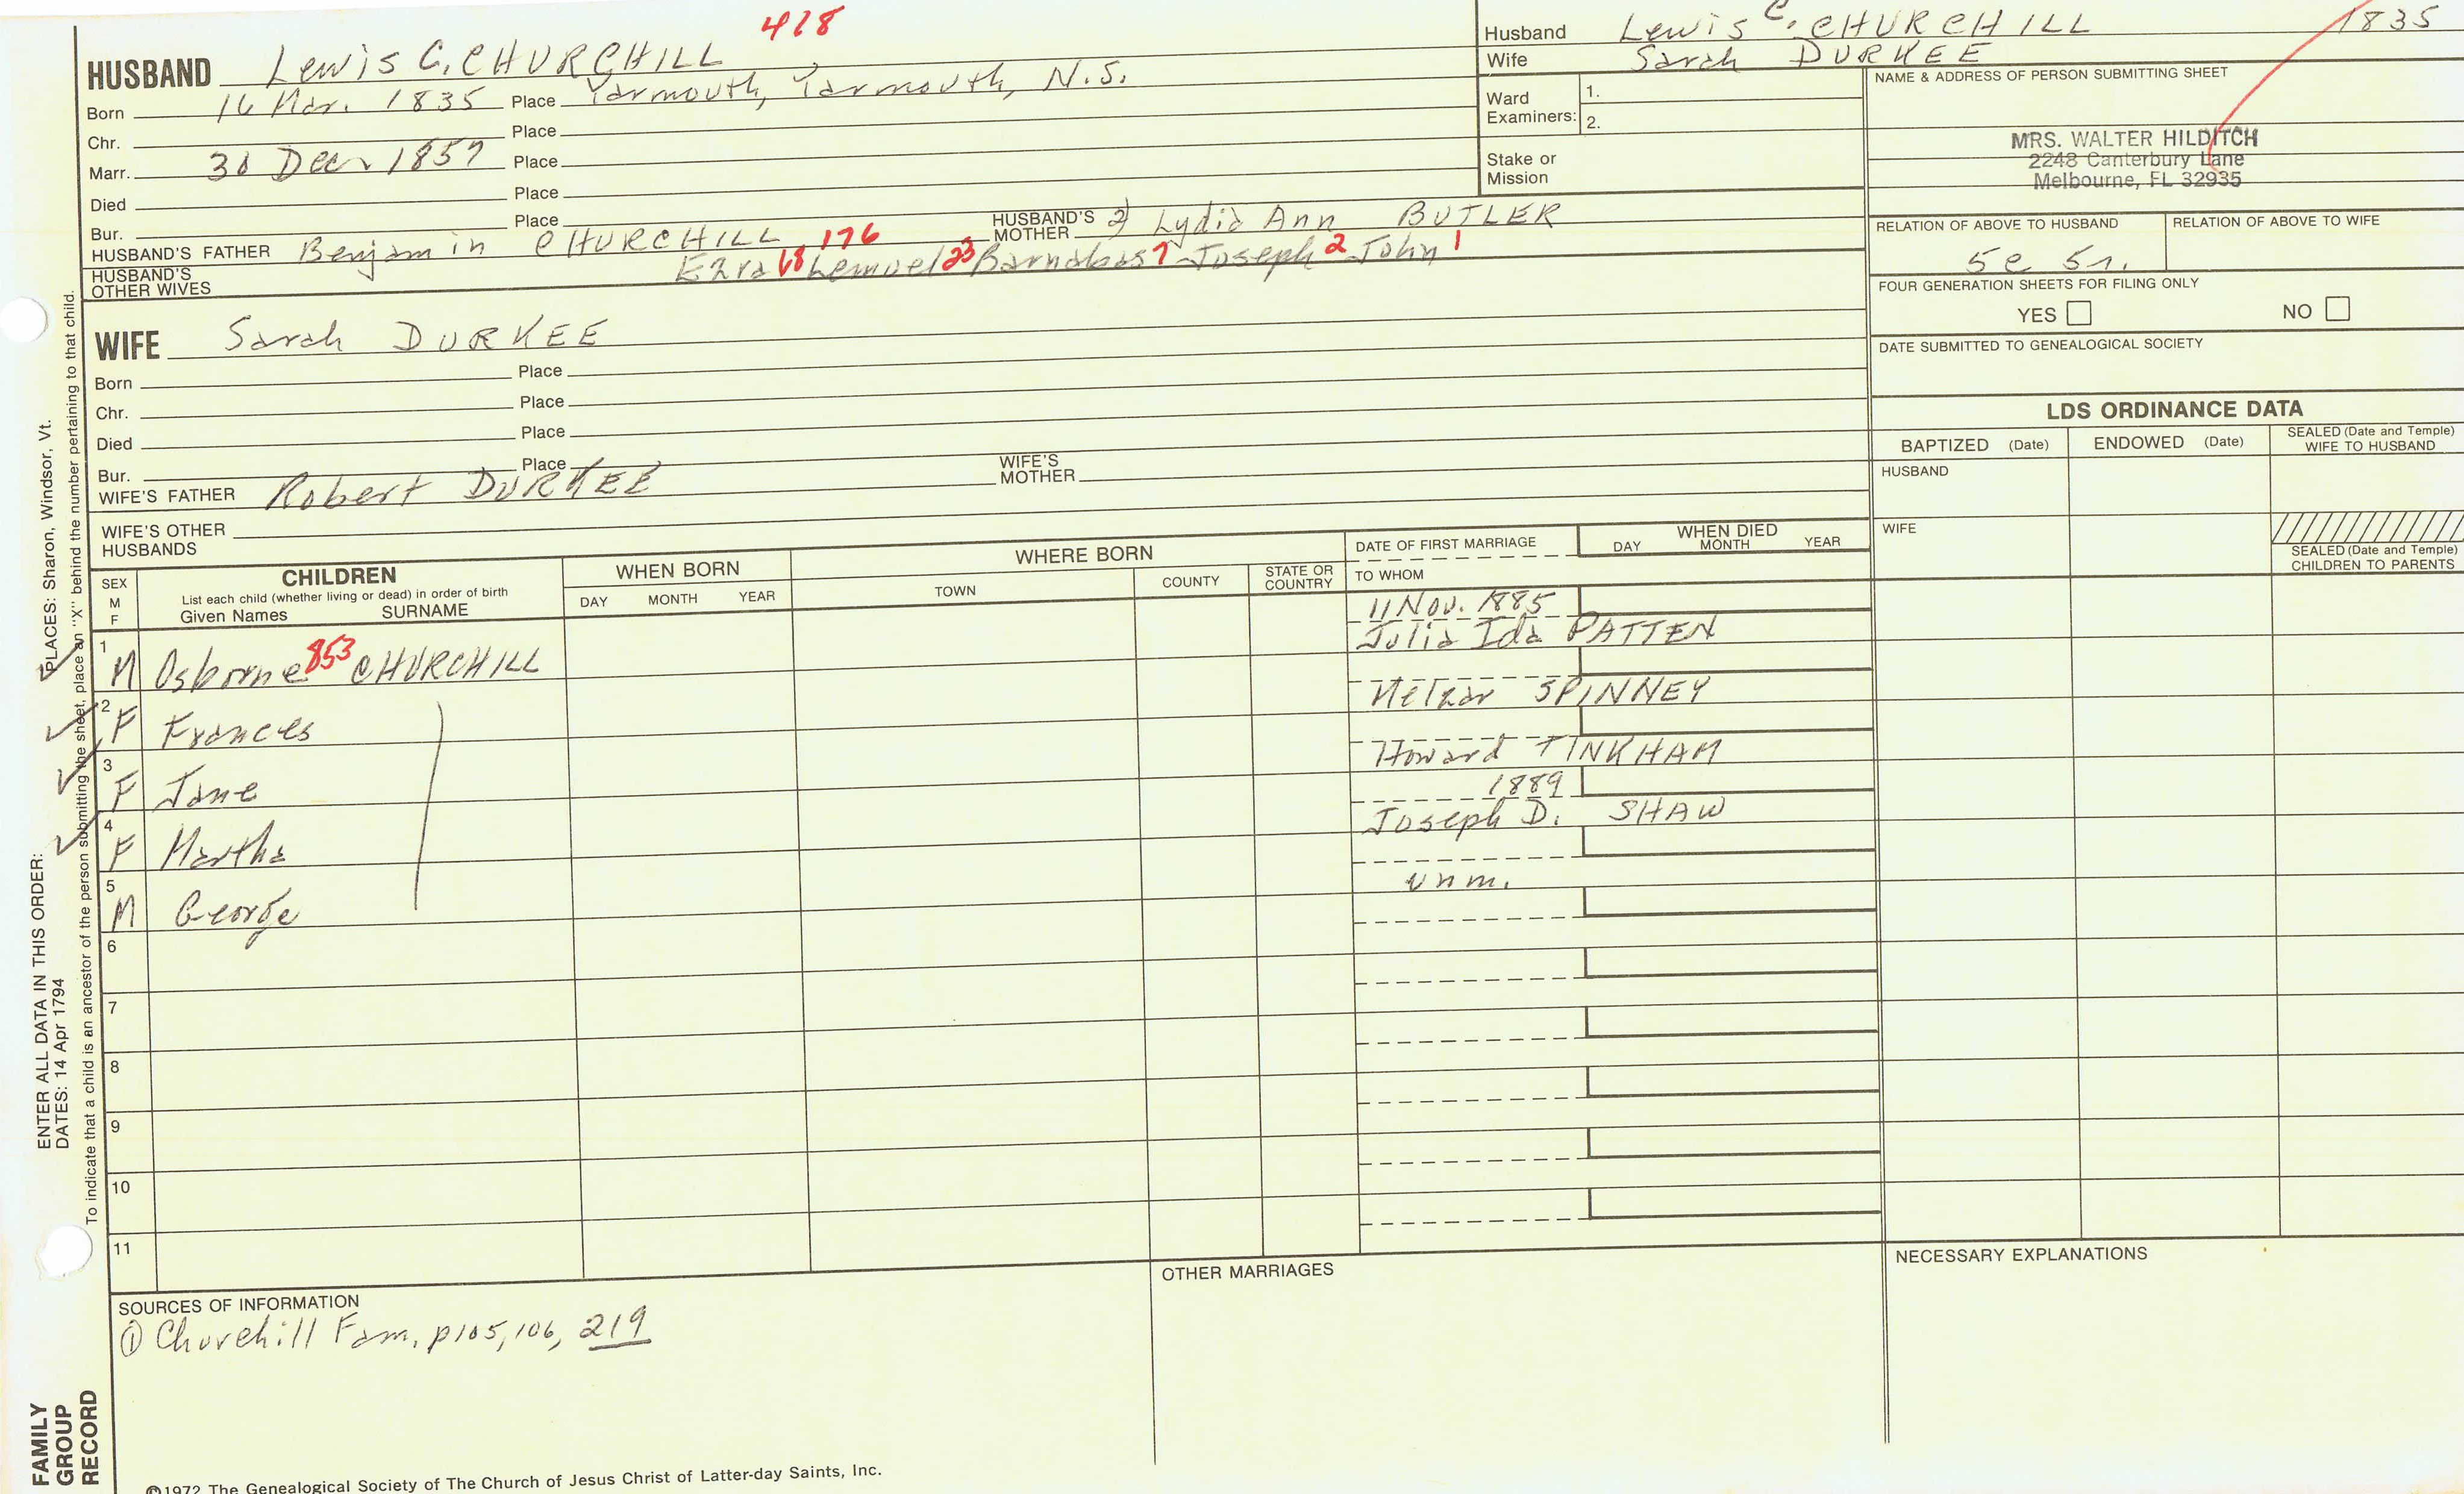 418
HUSBAND Lewis C. CHURCHILL
Born 16 Mar. 1835 Place Yarmouth, Yarmouth, N.S.
Chr. Place
Marr. 30 Dec. 1857 Place
Died Place
Bur. Place
HUSBAND'S FATHER Benjamin CHURCHILL 176 HUSBAND'S MOTHER 2) Lydia Ann BUTLER
HUSBAND'S OTHER WIVES Ezra 68 Lemuel 23 Barnabas 7 Joseph 2 John 1
WIFE Sarah DURKEE
Born Place
Chr. Place
Died Place
Bur. Place
WIFE'S FATHER Robert DURKEE WIFE'S MOTHER
WIFE'S OTHER HUSBANDS
Husband Lewis C. CHURCHILL 1835
Wife Sarah DURKEE
Ward Examiners: 1.
2.
Stake or Mission
NAME & ADDRESS OF PERSON SUBMITTING SHEET
MRS. WALTER HILDITCH
2248 Canterbury Lane
Melbourne, FL 32935
RELATION OF ABOVE TO HUSBAND RELATION OF ABOVE TO WIFE
5c 5r.
FOUR GENERATION SHEETS FOR FILING ONLY
YES NO
DATE SUBMITTED TO GENEALOGICAL SOCIETY
LDS ORDINANCE DATA
BAPTIZED (Date) ENDOWED (Date) SEALED (Date and Temple) WIFE TO HUSBAND
HUSBAND
WIFE
SEALED (Date and Temple) CHILDREN TO PARENTS
SEX M F
CHILDREN
List each child (whether living or dead) in order of birth
Given Names SURNAME
WHEN BORN
DAY MONTH YEAR
WHERE BORN
TOWN COUNTY STATE OR COUNTRY
DATE OF FIRST MARRIAGE
TO WHOM
WHEN DIED
DAY MONTH YEAR
11 Nov. 1885
1 M Osborne 853 CHURCHILL Julia Ida PATTEN
2 F Frances SPINNEY
3 F Jane Howard TINKHAM
1889
4 F Martha Joseph D. SHAW
5 M George unm.
6
7
8
9
10
11
SOURCES OF INFORMATION
① Churchill Fam, p105, 106, 219
OTHER MARRIAGES
NECESSARY EXPLANATIONS
ENTER ALL DATA IN THIS ORDER:
DATES: 14 Apr 1794
PLACES: Sharon, Windsor, Vt.
To indicate that a child is an ancestor of the person submitting the sheet, place an "X" behind the number pertaining to that child.
FAMILY
GROUP
RECORD
©1972 The Genealogical Society of The Church of Jesus Christ of Latter-day Saints, Inc.